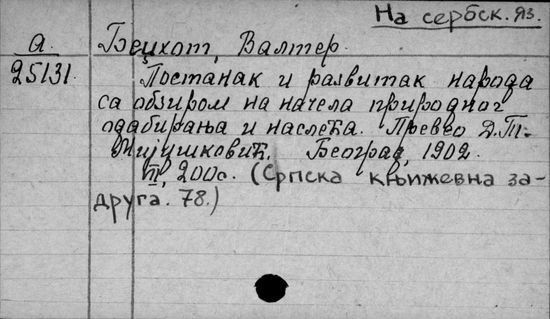 На сербск. яз.
А Беџхот, Валтер.
25131. Постанак и развитак народа
са обзиром на начела природног
одабирања и наслеђа. Превео Д.Т.
Мијушковић. Београд, 1902.
II, 200с. (Српска књижевна за-
друга. 78.)